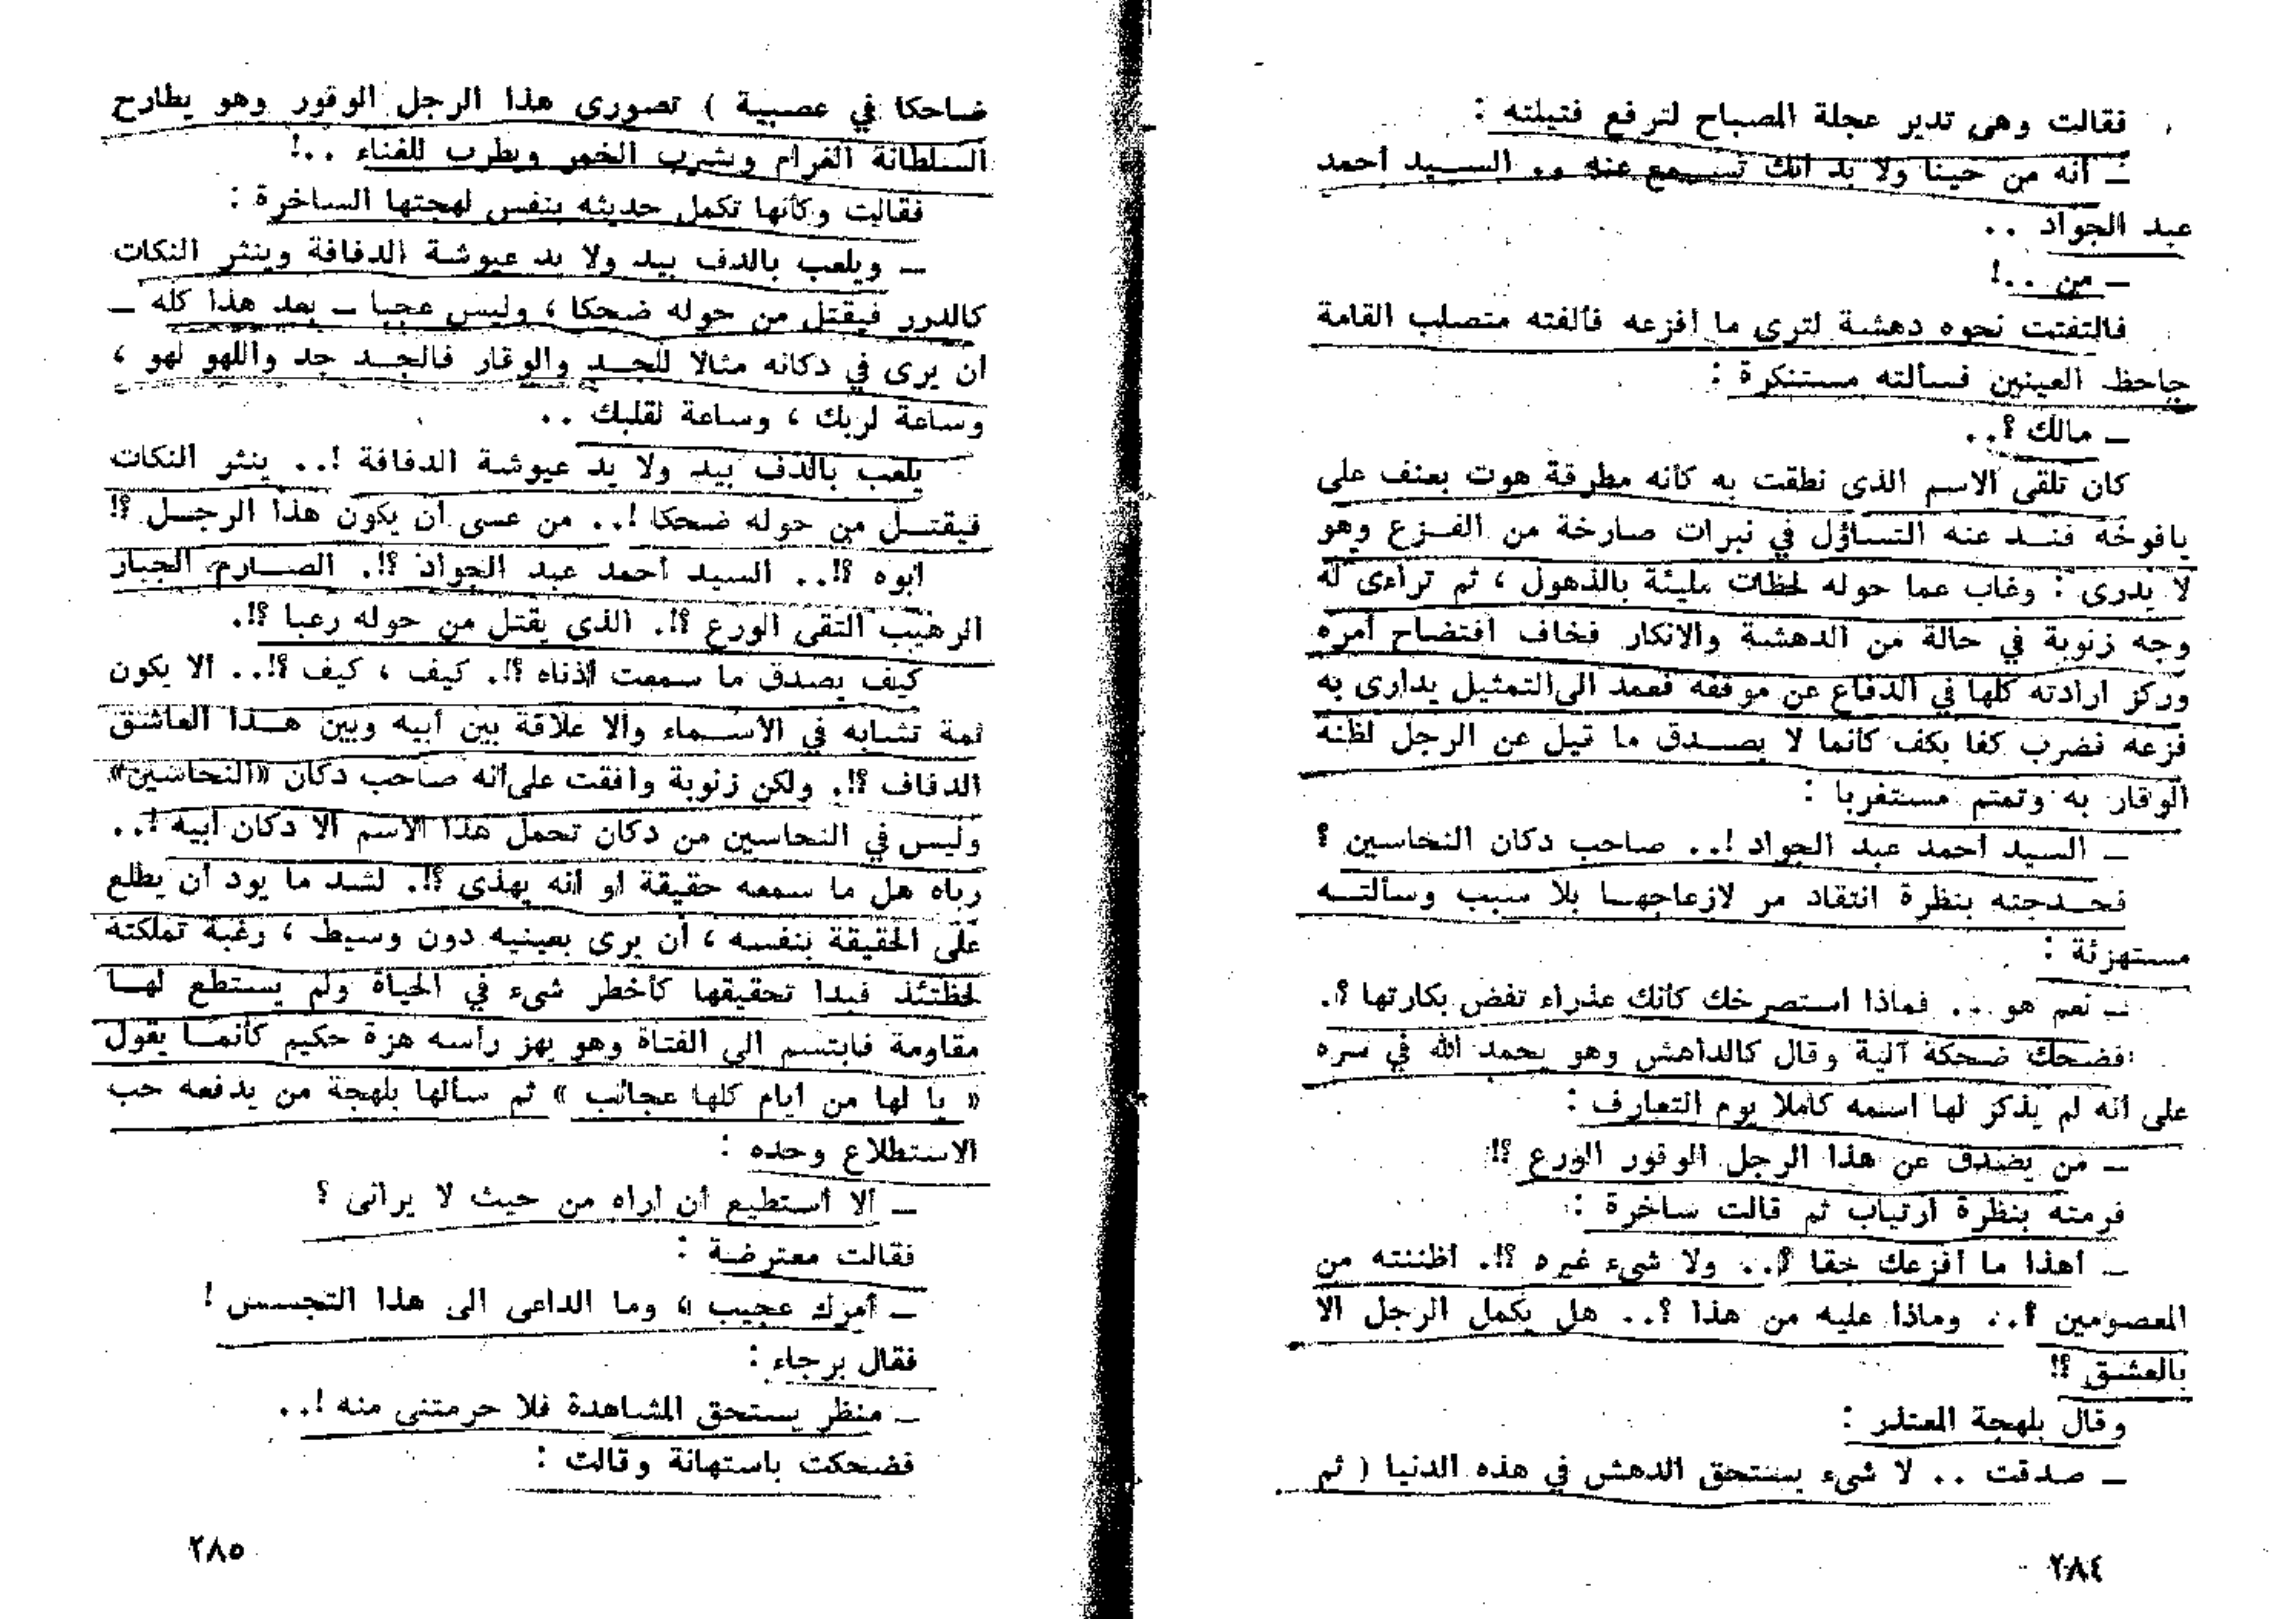 فقالت وهى تدير عجلة المصباح لترفع فتيلته :
ــ أنه من حينا ولا بد انك تسمع عنه .. السيد أحمد
عبد الجواد ..
ــ من ..!
فالتفتت نحوه دهشة لترى ما أفزعه فألفته متصلب القامة
جاحظ العينين فسألته مستنكرة :
ــ مالك ؟..
كان تلقى الاسم الذى نطقت به كأنه مطرقة هوت بعنف على
يافوخه فند عنه التساؤل في نبرات صارخة من الفزع وهو
لا يدرى : وغاب عما حوله لحظات مليئة بالذهول ، ثم تراءى له
وجه زنوبة في حالة من الدهشة والانكار فخاف افتضاح أمره
وركز ارادته كلها في الدفاع عن موقفه فعمد الى التمثيل يدارى به
فزعه فضرب كفا بكف كأنما لا يصدق ما قيل عن الرجل لظنه
الوقار به وتمتم مستغربا :
ــ السيد أحمد عبد الجواد !.. صاحب دكان النحاسين ؟
فحدجته بنظرة انتقاد مر لازعاجها بلا سبب وسألته
مستهزئة :
ــ نعم هو .. فماذا استصرخك كأنك عذراء تفض بكارتها ؟.
فضحك ضحكة آلية وقال كالداهش وهو يحمد الله في سره
على أنه لم يذكر لها اسمه كاملا يوم التعارف :
ــ من يصدق عن هذا الرجل الوقور الورع ؟!
فرمته بنظرة ارتياب ثم قالت ساخرة :
ــ أهذا ما أفزعك حقا ؟.. ولا شىء غيره ؟!. أظننته من
المعصومين ؟.. وماذا عليه من هذا ؟.. هل يكمل الرجل الا
بالعشق ؟!
وقال بلهجة المعتذر :
ــ صدقت .. لا شىء يستحق الدهش في هذه الدنيا ( ثم
٢٨٤
ضاحكا في عصبية ) تصورى هذا الرجل الوقور وهو يطارح
السلطانة الغرام ويشرب الخمر ويطرب للغناء ..!
فقالت وكأنها تكمل حديثه بنفس لهجتها الساخرة :
ــ ويلعب بالدف بيد ولا يد عيوشة الدفافة وينثر النكات
كالدرر فيقتل من حوله ضحكا ، وليس عجبا ــ بعد هذا كله ــ
ان يرى في دكانه مثالا للجد والوقار فالجد جد واللهو لهو ،
وساعة لربك ، وساعة لقلبك ..
يلعب بالدف بيد ولا يد عيوشة الدفافة !.. ينثر النكات
فيقتل من حوله ضحكا !.. من عسى أن يكون هذا الرجل ؟!
أبوه ؟!.. السيد أحمد عبد الجواد ؟!. الصارم الجبار
الرهيب التقى الورع ؟!. الذى يقتل من حوله رعبا ؟!.
كيف يصدق ما سمعت أذناه ؟!. كيف ، كيف ؟!.. ألا يكون
ثمة تشابه في الأسماء وألا علاقة بين أبيه وبين هذا العاشق
الدفاف ؟!. ولكن زنوبة وافقت على أنه صاحب دكان «النحاسين»
وليس في النحاسين من دكان تحمل هذا الاسم الا دكان أبيه !..
رباه هل ما سمعه حقيقة او أنه يهذى ؟!. لشد ما يود أن يطلع
على الحقيقة بنفسه ، أن يرى بعينيه دون وسيط ، رغبة تملكته
لحظتئذ فبدا تحقيقها كأخطر شىء في الحياة ولم يستطع لها
مقاومة فابتسم الى الفتاة وهو يهز رأسه هزة حكيم كأنما يقول
« يا لها من أيام كلها عجائب » ثم سألها بلهجة من يدفعه حب
الاستطلاع وحده :
ــ ألا أستطيع أن أراه من حيث لا يرانى ؟
فقالت معترضة :
ــ أمرك عجيب ، وما الداعى الى هذا التجسس !
فقال برجاء :
ــ منظر يستحق المشاهدة فلا حرمتنى منه !..
فضحكت باستهانة وقالت :
٢٨٥